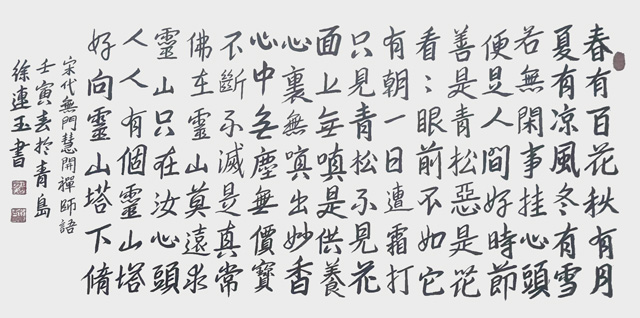 春有百花秋有月
夏有凉風冬有雪
若無閑事挂心頭
便是人間好時節
善是青松惡是花
看:眼前不如它
有朝一日遭霜打
只見青松不見花
面上无嗔是供養
心裏無嗔出妙香
心中无塵無價寶
不斷不滅是真常
佛在靈山莫遠求
靈山只在汝心頭
人人有個靈山塔
好向靈山塔下脩
宋代無門慧開禪師語
壬寅春於青島
徐連玉書